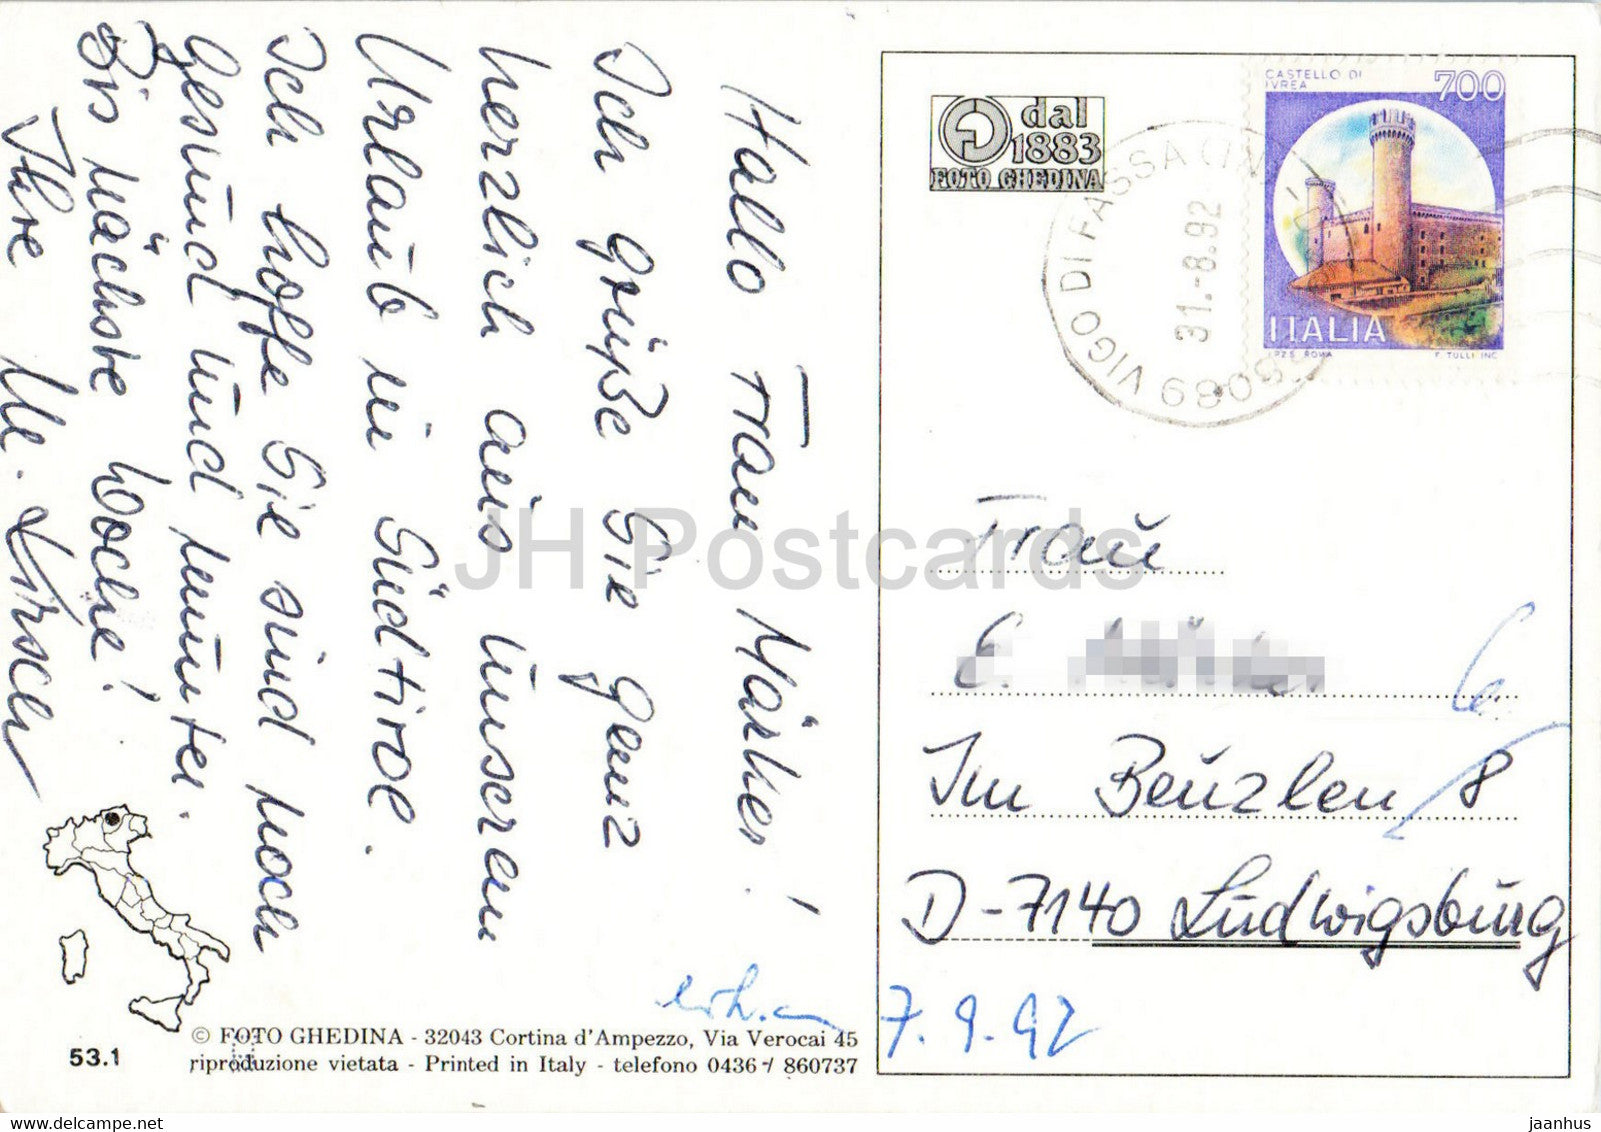 Hallo Frau Märker!
Ich grüße Sie ganz
herzlich aus unserem
Urlaub in Südtirol.
Ich hoffe Sie sind noch
gesund und munter.
Bis nächste Woche!
Ihre M. Kirsch
53.1
© FOTO GHEDINA - 32043 Cortina d'Ampezzo, Via Verocai 45
riproduzione vietata - Printed in Italy - telefono 0436 / 860737
dal
1883
FOTO GHEDINA
38089 VIGO DI FASSA (TN)
31.-8.92
CASTELLO DI
IVREA
700
ITALIA
I.P.Z.S. ROMA
F. TULLI INC.
Frau
E.
Im Beuzlen 8
6
D-7140 Ludwigsburg
7.9.92
JH Postcards
jaanhus